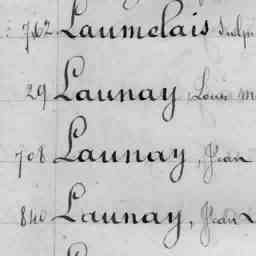 762 Laumelais Sulpi
29 Launay Louis M
708 Launay, Jean
840 Launay, Jean